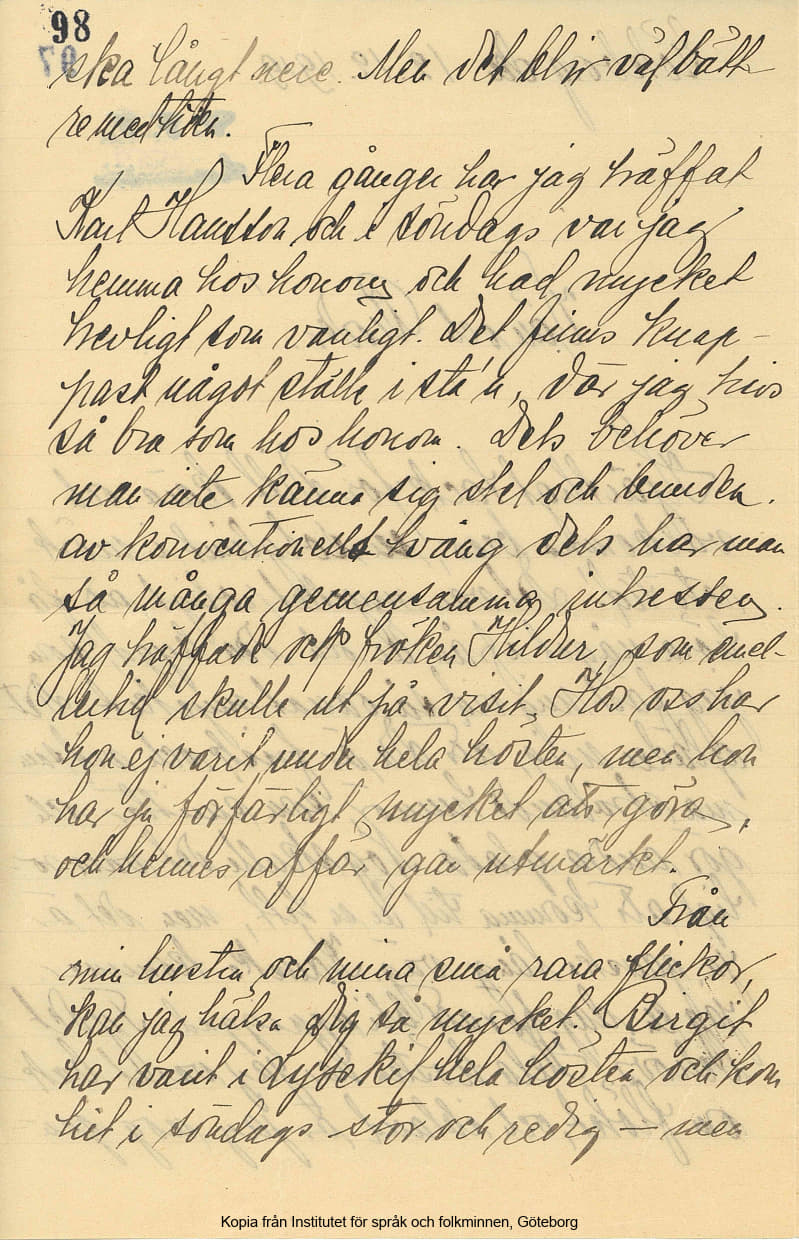 98
97
ska långt nere. Men det blir väl bätt
re med tiden.
Flera gånger har jag träffat
Karl Hansson och i söndags var jag
hemma hos honom och had mycket
trevligt som vanligt. Det finns knap-
past något ställe i sta'n, där jag trivs
så bra som hos honom. Dels behöver
man inte känna sig stel och bunden
av konventionellt tvång dels har man
så många gemensamma intressen.
Jag träffade ock fröken Hildur, som emel-
lertid skulle ut på visit. Hos oss har
hon ej varit under hela hösten, men hon
har ju förfärligt mycket att göra,
och hennes affär går utmärkt.
Från
min hustru och mina små rara flickor,
kan jag hälsa Dig så mycket. Birgit
har varit i Lysekil hela hösten och kom
hit i söndags stor och redig – men
Kopia från Institutet för språk och folkminnen, Göteborg